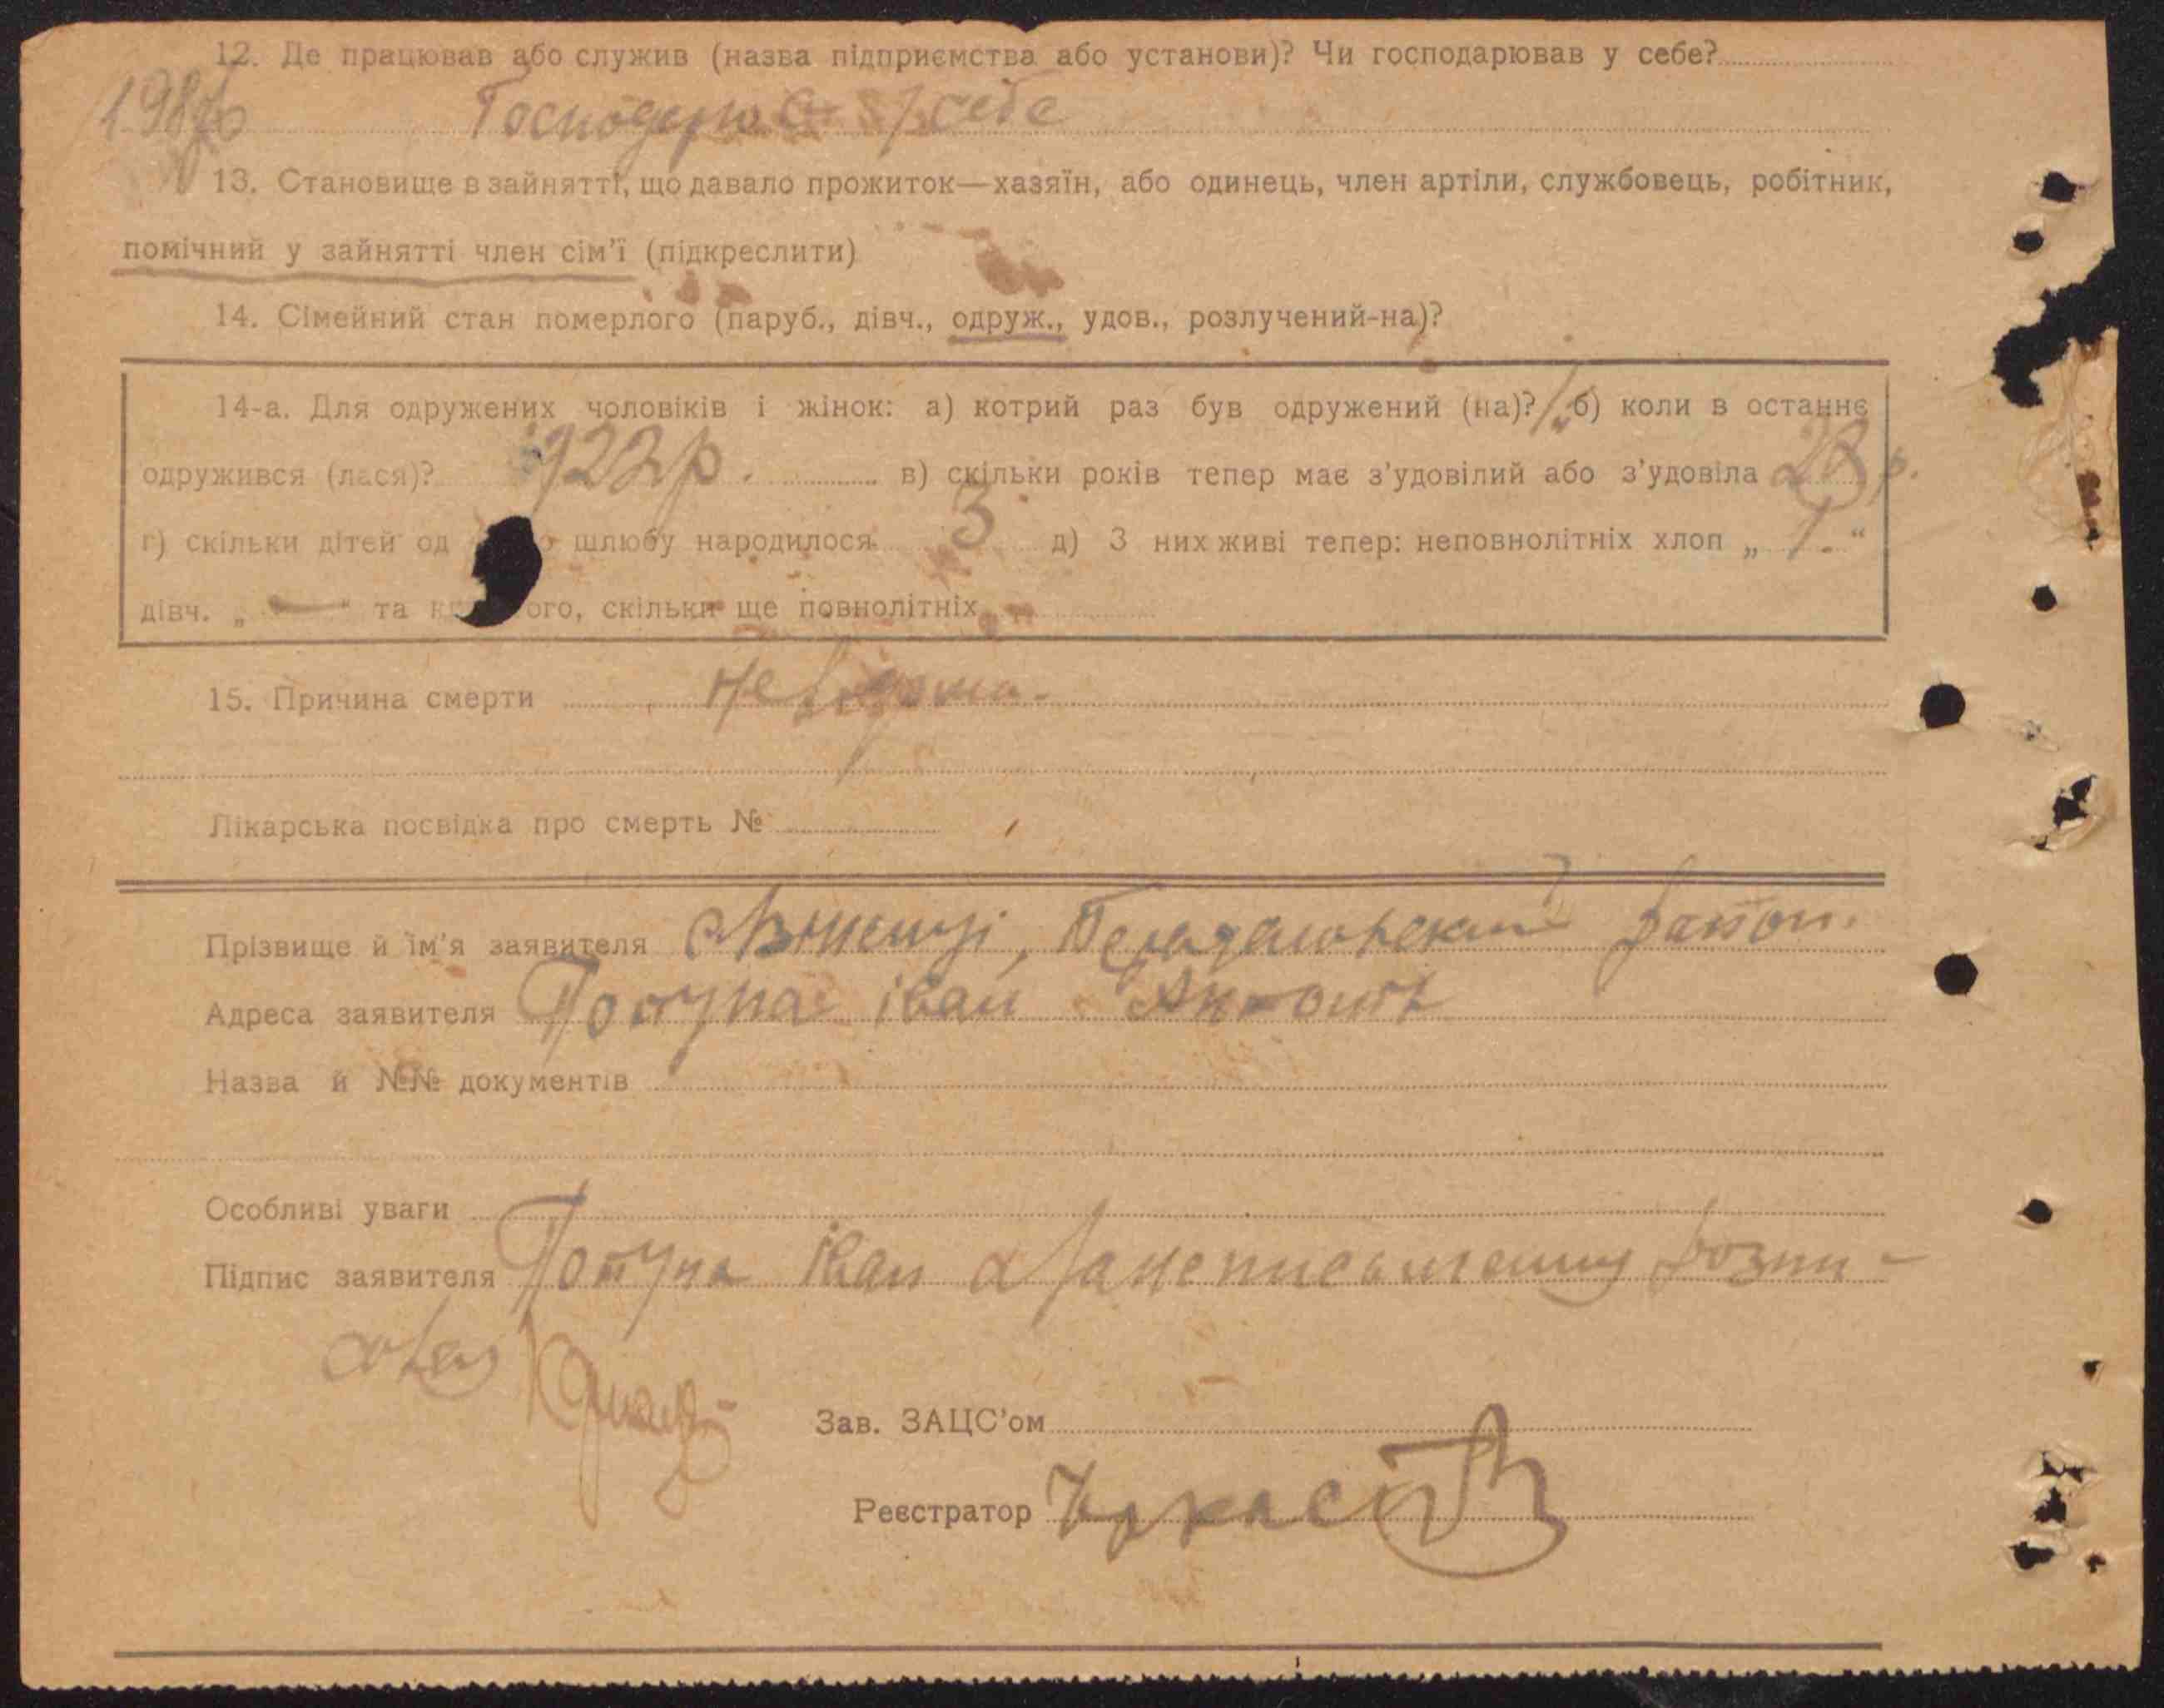 12. Де працював або служив (назва підприємства або установи)? Чи господарював у себе?
у себе
13. Становище в зайнятті, що давало прожиток—хазяїн, або одинець, член артіли, службовець, робітник,
помічний у зайнятті член сім'ї (підкреслити)
14. Сімейний стан померлого (паруб., дівч., одруж., удов., розлучений-на)?
14-а. Для одружених чоловіків і жінок: а) котрий раз був одружений (на)? 1 б) коли в останнє
одружився (лася)? 1922 р. в) скільки років тепер має з'удовілий або з'удовіла 28 р.
г) скільки дітей од шлюбу народилося 3 д) З них живі тепер: неповнолітніх хлоп „ 1. “
дівч. „ — “ та ого, скільки ще повнолітніх
15. Причина смерти невідома.
Лікарська посвідка про смерть №
Прізвище й ім'я заявителя район.
Адреса заявителя Потупа іван
Назва й №№ документів
Особливі уваги
Підпис заявителя Потупа іван а за неписьменну розпи-
Зав. ЗАЦС'ом
Реєстратор